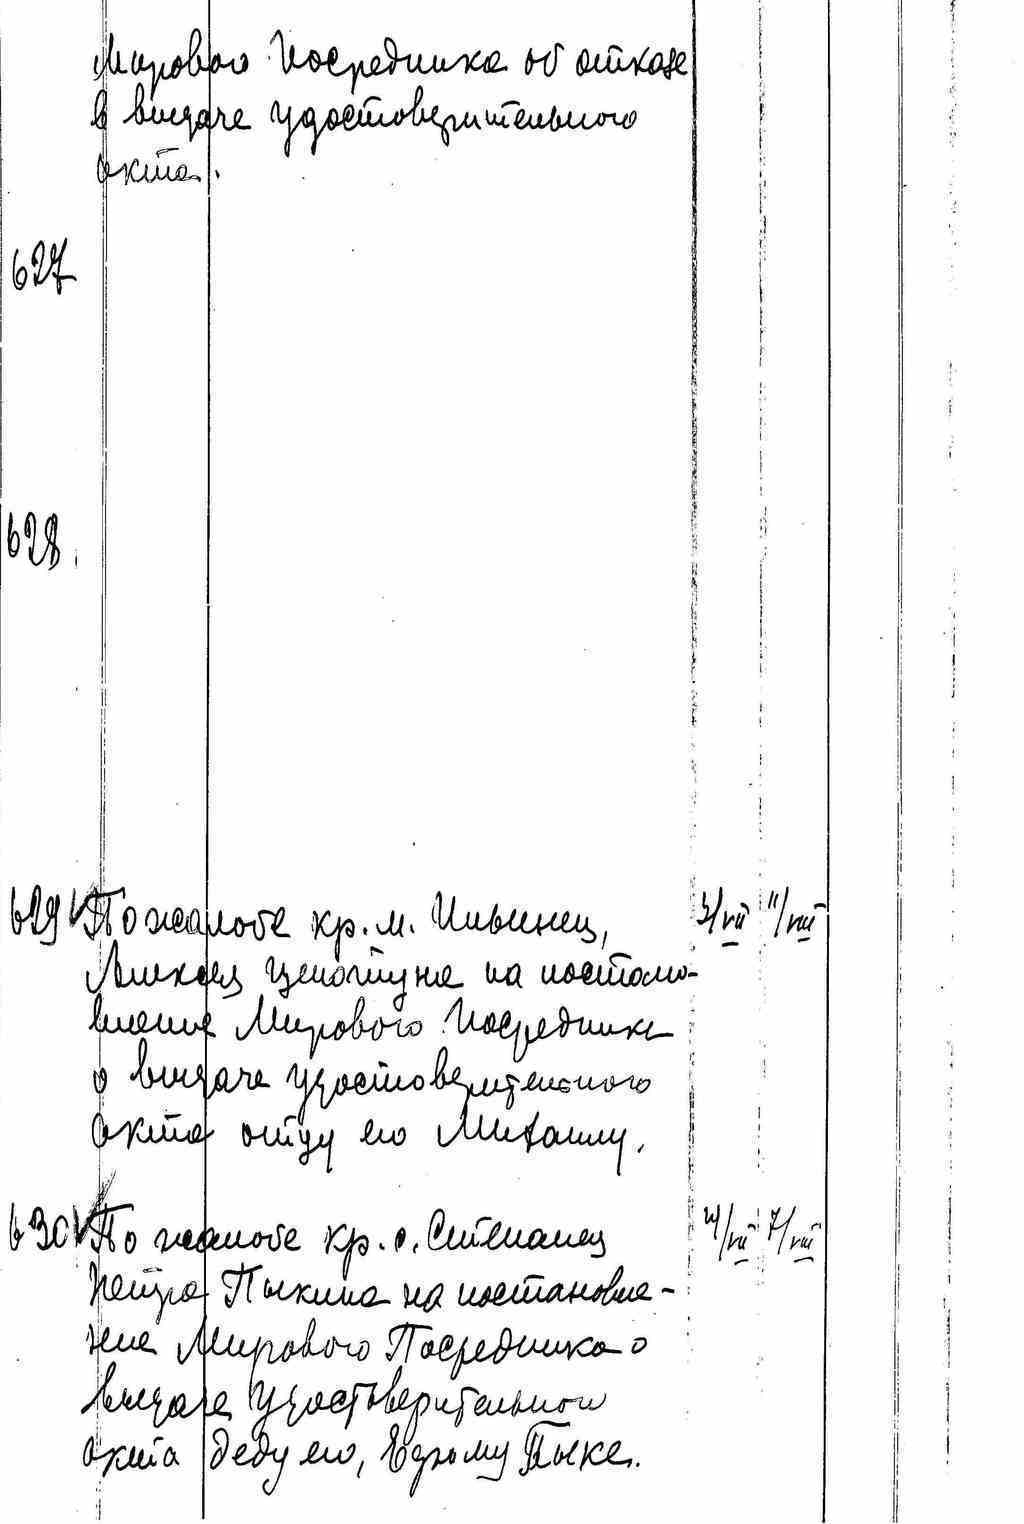 Мирового Посредника об отказе
в выдаче удостоверительного
акта.
627
628.
629 По жалобе кр. м. Ильинец, 3/VII 11/VIII
Алексея на постано-
вление Мирового Посредника
о выдаче удостоверительного
акта отцу его Михаилу.
630 По жалобе кр. с. Степанец 24/VII 7/VIII
Петра Пыкина на постановле-
ние Мирового Посредника о
выдаче удостоверительного
акта деду его, Ефиму Пыке.